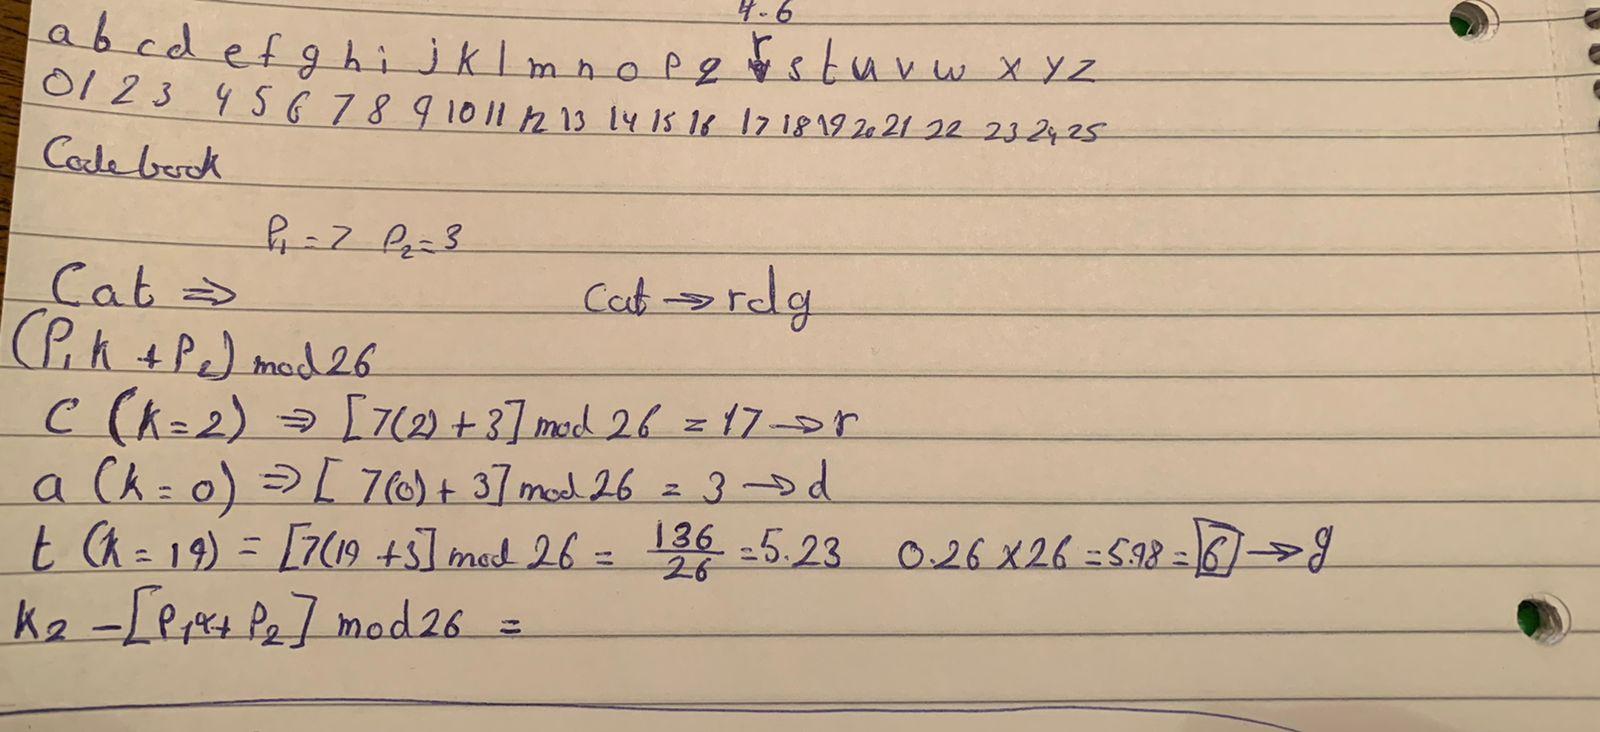 4.6
a b c d e f g h i j k l m n o p q r s t u v w x y z
0 1 2 3 4 5 6 7 8 9 10 11 12 13 14 15 16 17 18 19 20 21 22 23 24 25
Codebook
P₁ = 7 P₂ = 3
Cat ⇒ Cat → rdg
(P₁k + P₂) mod 26
C (k = 2) ⇒ [7(2) + 3] mod 26 = 17 → r
a (k = 0) ⇒ [7(0) + 3] mod 26 = 3 → d
t (k = 19) = [7(19 + 3] mod 26 = 136/26 = 5.23 0.26 × 26 = 5.98 = 6 → g
K₂ - [P₁α + P₂] mod 26 =